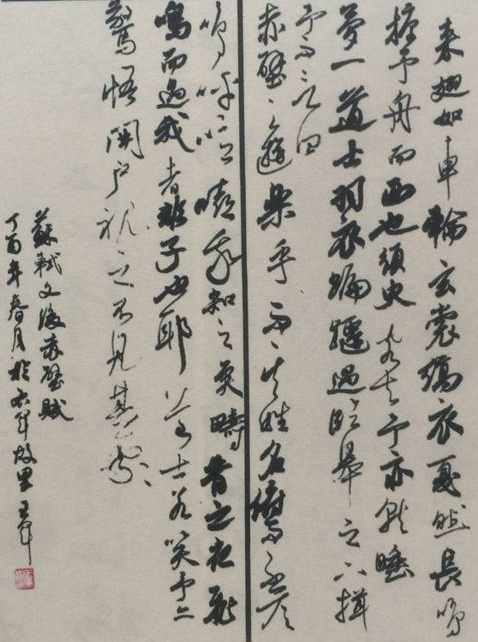 来翅如車輪玄裳縞衣戛然長鳴
掠予舟而西也須臾客去予亦就睡
夢一道士羽衣蹁躚過臨皋之下揖
予而言曰
赤壁之遊樂乎問其姓名俯而不答
嗚呼噫嘻我知之矣疇昔之夜飛
鳴而過我者非子也耶道士顧笑予亦
驚悟開户視之不見其處
蘇軾文後赤壁賦
丁酉年春月於故里王